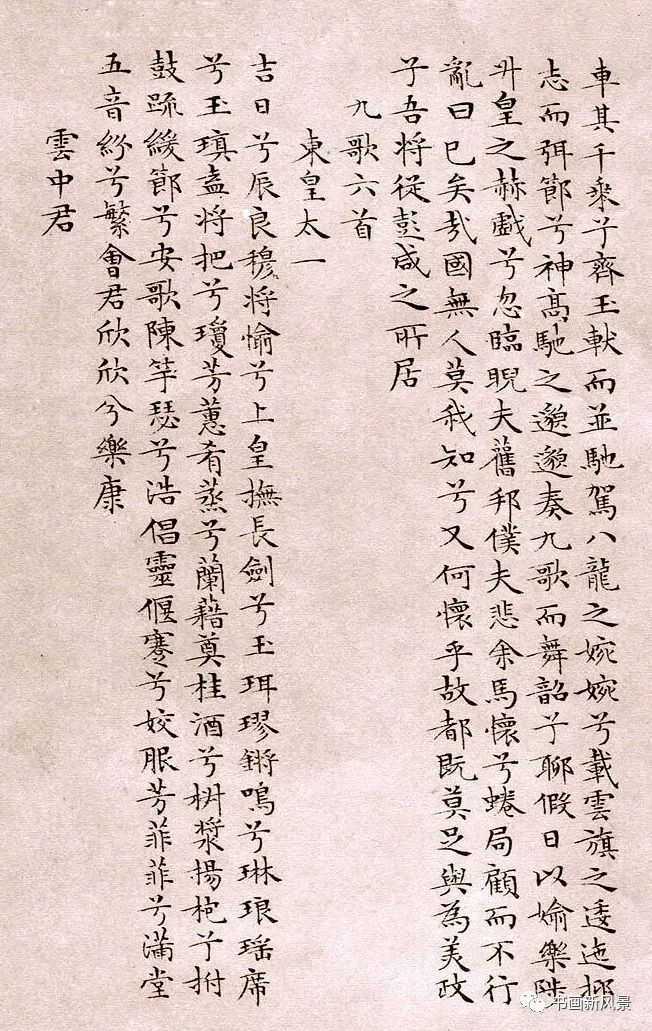 車其千乗兮齊玉軑而並馳駕八龍之婉婉兮載雲旗之逶迤抑
志而弭節兮神高馳之邈邈奏九歌而舞韶兮聊假日以婾樂陟
升皇之赫戲兮忽臨睨夫舊邦僕夫悲余馬懷兮蜷局顧而不行
亂曰已矣哉國無人莫我知兮又何懷乎故都既莫足與為美政
子吾將從彭咸之所居
九歌六首
東皇太一
吉日兮辰良穆將愉兮上皇撫長劍兮玉珥璆鏘鳴兮琳琅瑤席
兮玉瑱盍將把兮瓊芳蕙肴蒸兮蘭藉奠桂酒兮椒漿揚枹兮拊
鼓疏緩節兮安歌陳竽瑟兮浩倡靈偃蹇兮姣服芳菲菲兮滿堂
五音紛兮繁會君欣欣兮樂康
雲中君
书画新风景